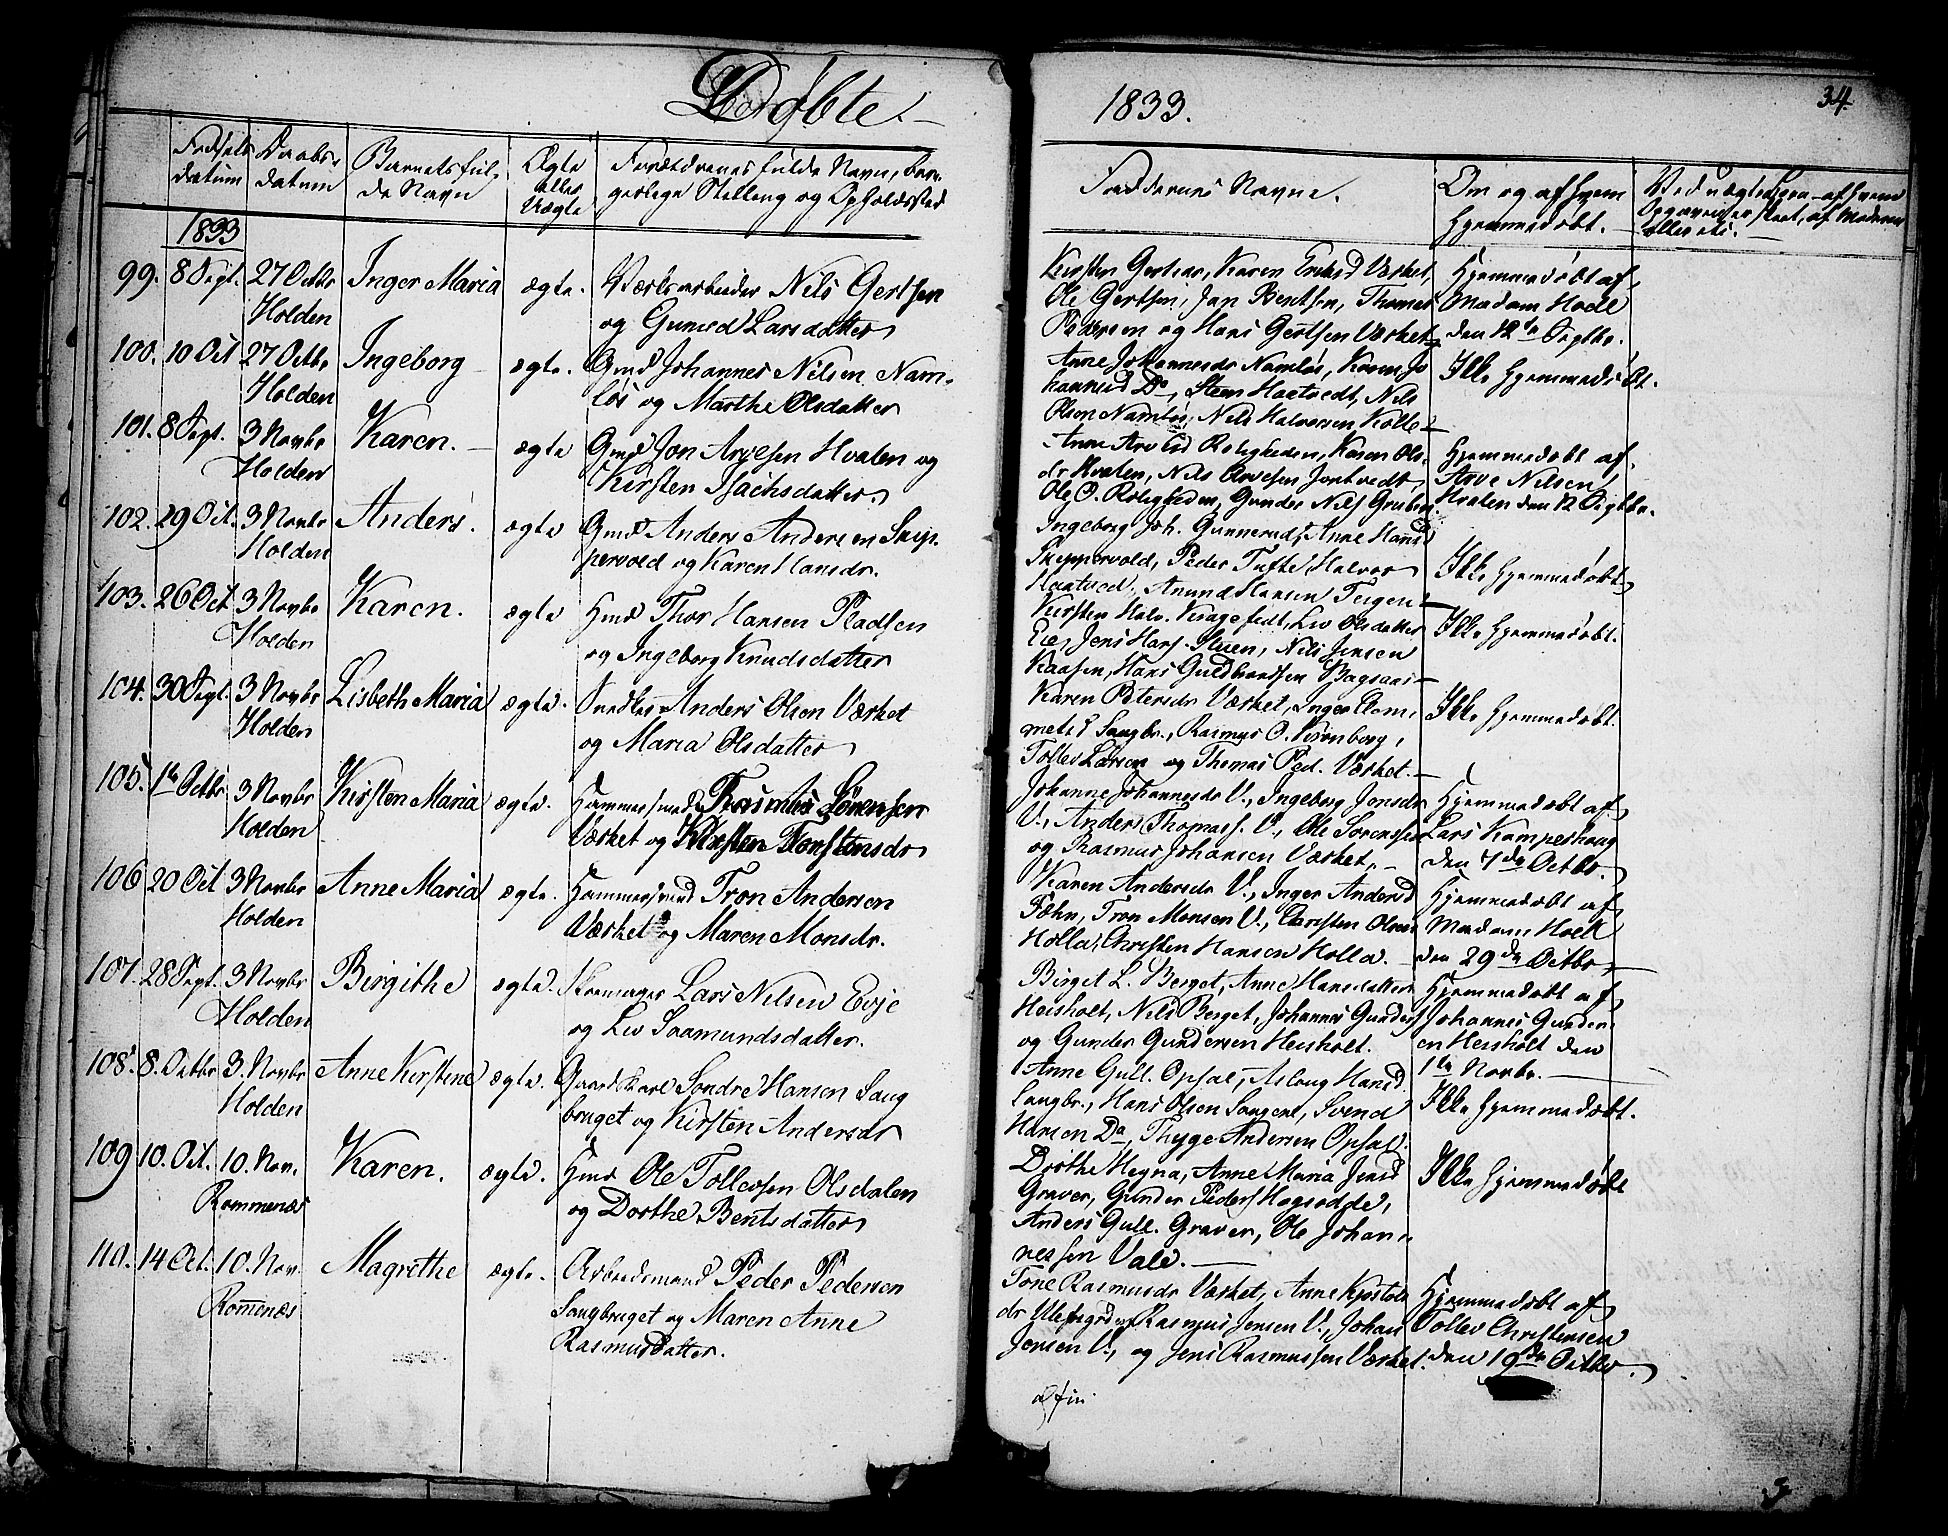 Døbte.
1833.
34
Fødsels
datum
Daabs-
datum
Barnets ful-
de Navn
Ægte
eller
Uægte
Forældrenes fulde Navn, bor-
gerlige Stilling og Opholdssted
Faddernes Navne.
Om og af hvem
Hjemmedøbt.
1833
99. 8 Sept. 27 Octbr Inger Maria ægte. Værksarbeider Nils Gertsen
Holden og Gunild Larsdatter
Ole Gertsen, Jan Bentsen, Thomas
Pedersen og Hans Gertsen Værket
Hjemmedøbt af
Madam
den 12te Septbr.
100. 10 Oct 27 Octbr Ingeborg ægte. Gmd Johannes Nilsen Nam-
Holden løs og Marthe Olsdatter
Anne Johannesdr Namløs, Karen Jo
hannesd Do, Steen Haatvedt, Nils
Olsen Namløs, Nils Halvorsen Kolle
Ikke hjemmedøbt.
101. 8 Sept. 3 Novbr Karen. ægte Gmd Jon Arvesen Hvalen og
Holden Kirsten Isachsdatter
Anne Roligheden, Karen Ols-
dr Hvalen, Nils Arvesen Jontvedt,
Ole O. Roligheden, Gunder Nils Gruben
Hjemmedøbt af
Arve Nilsen
Hvalen den 12 Septbr.
102. 29 Oct. 3 Novbr Anders. ægte Gmd Anders Andersen Skip-
Holden pervold og Karen Hansdr.
Ingeborg Joh. Gunnerud, Anne Hansd
Skippervold, Peder Tufte, Halvor
Haatved, Amund Hansen Teigen
Ikke hjemmedøbt
103. 26 Oct 3 Novbr Karen. ægte Hmd Thor Hansen Pladsen
Holden og Ingeborg Knudsdatter
Kirsten Halv. Kragefedt, Liv Olsdatter
Eie, Jens Hans. Stuen, Nils Jensen
Kaasen, Hans Guldbrandsen Bagaas
Ikke hjemmedøbt.
104. 30 Sept. 3 Novbr Lisbeth Maria ægte. Anders Olsen Værket
Holden og Maria Olsdatter
Karen Petersdr Værket, Inger Clem-
metsd Saugbr., Rasmus O. Kronborg,
Tollev Larsen og Thomas Ped. Værket.
Ikke hjemmedøbt.
105. 1te Octbr 3 Novbr Kirsten Maria ægte. Hammersmed Rasmus Sørensen
Holden Værket og Kirsten Torstensdr
Johanne Johannesdr V., Ingeborg Jonsdr
V., Anders Thomass. V., Ole Sørensen
og Rasmus Johansen Værket.
Hjemmedøbt af
Lars Kamperhaug
den 7de Octbr.
106 20 Oct 3 Novbr Anne Maria ægte. Hammersmed Tron Andersen
Holden Værket og Maren Monsdr.
Karen Andersdr V., Inger Andersd
Fæhn, Tron Monsen V., Christen Olsen
Holla, Christen Hansen Holla.
Hjemmedøbt af
Madam Holk
den 29de Octbr
107. 28 Sept. 3 Novbr Birgithe ægte. Skomager Lars Nilsen Evje
Holden og Liv Saamundsdatter.
Birget L. Berget, Anne Hansdatter
Heisholt, Nils Berget, Johannes Gunders
og Gunder Gundersen Heisholt.
Hjemmedøbt af
Johannes Gunder-
en Heisholt den
1te Novbr.
108. 8. Octbr 3. Novbr Anne Kirstine ægte. Gaardkarl Sondre Hansen Saug
Holden bruget og Kirsten Andersdr
Anne Gull. Opsal, Aslaug Hansd
Saugbr., Hans Olsen Saugent, Svend
Hansen Do, Thyge Andersen Opsal.
Ikke hjemmedøbt.
109 10. Oct. 10. Nov. Karen. ægte. Hmd Ole Tollevsen Olsdalen
Rommenæs og Dorthe Bentsdatter
Dorthe Hegna, Anne Maria Jensd
Graver, Gunder Peders Hogsodde,
Anders Gull. Graver, Ole Johan-
nessen Vale.
Ikke hjemmedøbt
110. 14 Oct. 10. Nov. Magrethe ægte. Arbeidsmand Peder Pedersen
Romenæs Saugbruget og Maren Anne
Rasmusdatter.
Tone Rasmusdr Værket, Anne
dr Rasmus Jensen V., Johan
Jensen V., og Jens Rasmussen Værket.
Hjemmedøbt af
Tollev Christensen
den 19de Octbr